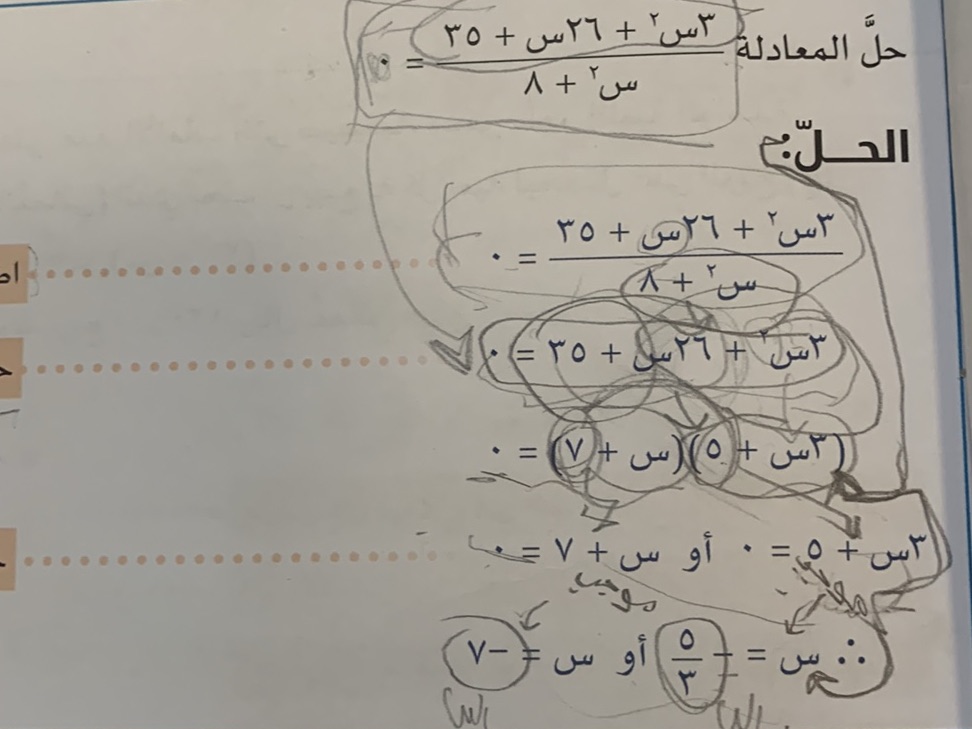 حلَّ المعادلة (٣س٢ + ٢٦س + ٣٥) / (س٢ + ٨) = ٠
الحــلّ:
(٣س٢ + ٢٦س + ٣٥) / (س٢ + ٨) = ٠
٣س٢ + ٢٦س + ٣٥ = ٠
(٣س + ٥)(س + ٧) = ٠
٣س + ٥ = ٠ أو س + ٧ = ٠
موجب موجب
∴ س = −٥/٣ أو س = −٧